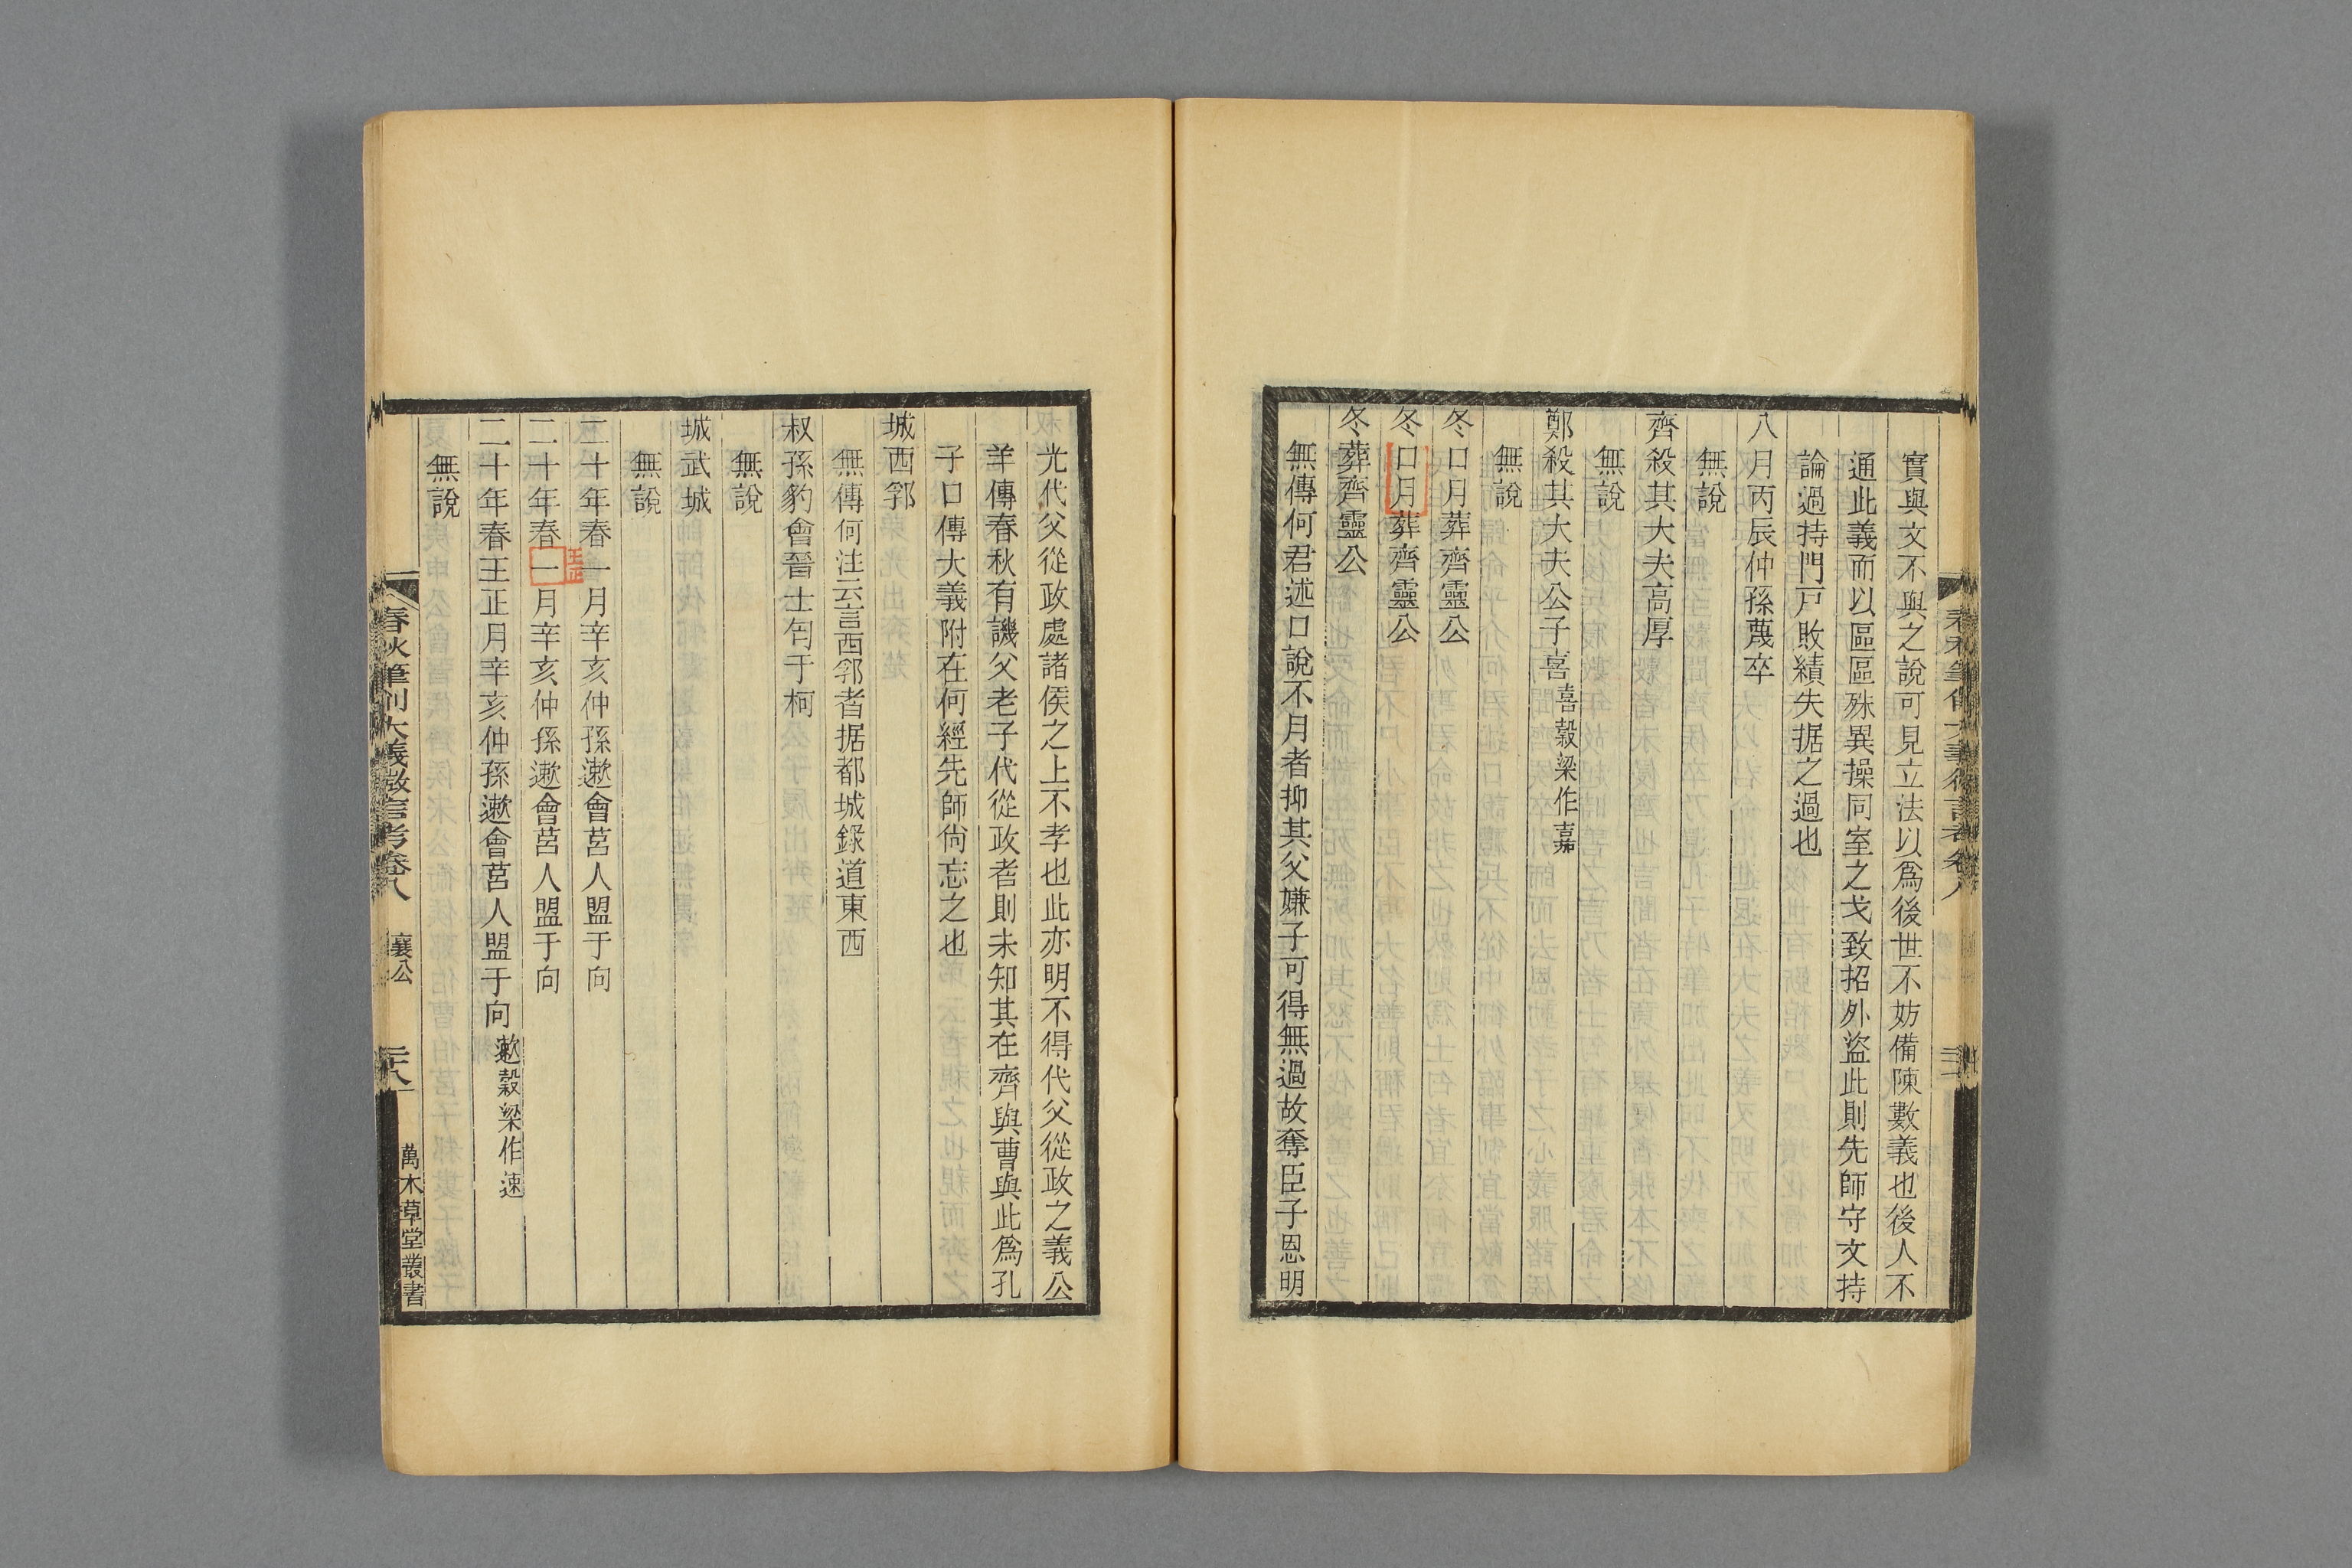 實與文不與之說可見立法以爲後世不妨備陳數義也後人不
通此義而以區區殊異操同室之戈致招外盜此則先師守文持
論過持門戸敗績失据之過也
八月丙辰仲孫蔑卒
無說
齊殺其大夫高厚
無說
鄭殺其大夫公子喜喜穀梁作嘉
無說
冬口月葬齊靈公
冬口月葬齊靈公
冬葬齊靈公
無傳何君述口說不月者抑其父嫌子可得無過故奪臣子恩明
光代父從政處諸侯之上不孝也此亦明不得代父從政之義公
羊傳春秋有譏父老子代從政者則未知其在齊與曹與此爲孔
子口傳大義附在何經先師尙忘之也
城西郛
無傳何注云言西郛者据都城錄道東西
叔孫豹會晉士匄于柯
無說
城武城
無說
二十年春一月辛亥仲孫遬會莒人盟于向
王正
二十年春一月辛亥仲孫遬會莒人盟于向
二十年春王正月辛亥仲孫遬會莒人盟于向遬穀梁作速
無說
春秋筆削大義微言考卷八 襄公 二十八 萬木草堂叢書